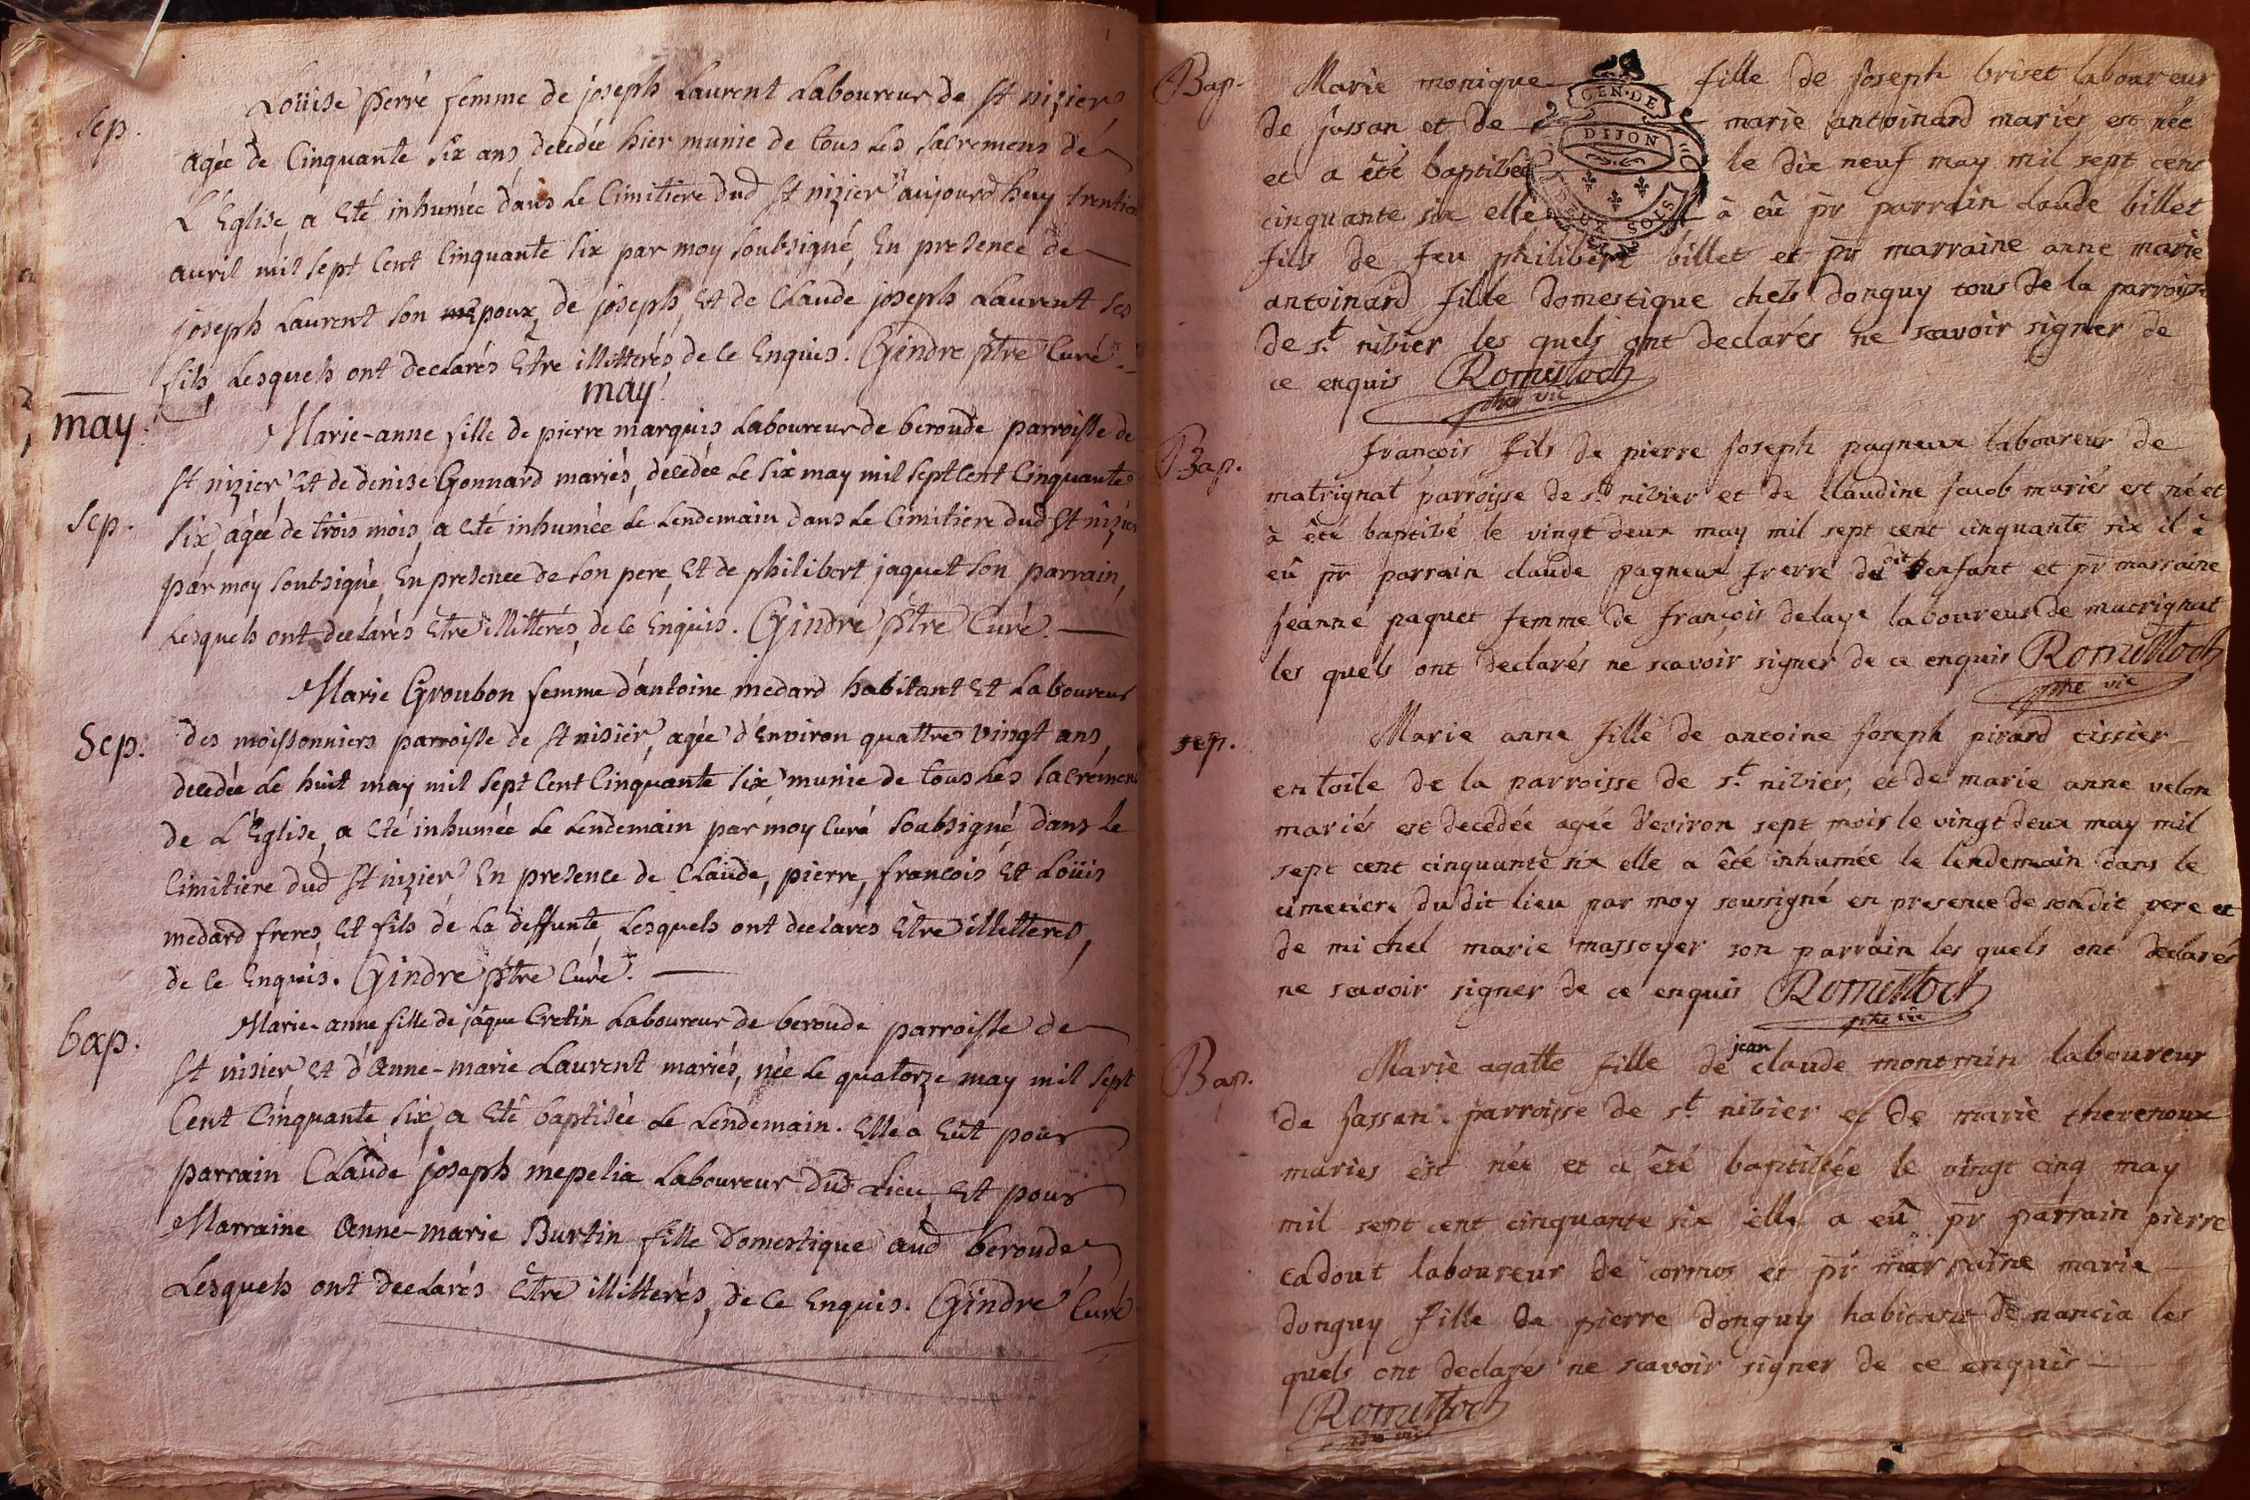 sep.
Loüise perré femme de joseph Laurent Laboureur de St nizier
agée de Cinquante six ans, decedée hier munie de tous Les sacremens de
L'Eglise, a Eté inhumée dans Le Cimitiere dud St nizier aujourd huy trentieme
avril mil sept Cent Cinquante six par moy soubsigné, En presence de
joseph Laurent son Epoux, de joseph, Et de Claude joseph Laurent ses
fils, Lesquels ont declarés Etre illitterés, de ce Enquis. Gindre ptre Curé.
may.
may:
Marie-anne fille de pierre marquis Laboureur de beroude parroisse de
St nizier, Et de denise Gonnard mariés, decedée Le six may mil sept Cent Cinquante
sep.
six, agée de trois mois, a Eté inhumée Le Lendemain dans Le Cimitiere dud St nizier
par moy soubsigné, En presence de son pere, Et de philibert jaquet son parrain,
Lesquels ont declarés Etre illitterés, de ce Enquis. Gindre ptre Curé.
Marie Groubon femme d'antoine medard habitant Et Laboureur
Sep.
des moissonniers parroisse de St nisier, agée d'Environ quattre vingt ans,
decedée Le huit may mil sept Cent Cinquante six munie de tous Les sacremens
de L'Eglise, a Eté inhumée Le Lendemain par moy Curé soubsigné, dans Le
Cimitiere dud St nizier, En presence de Claude, pierre, francois Et Loüis
medard freres, Et fils de La deffunte, Lesquels ont declarés Etre illitterés,
de ce Enquis. Gindre ptre Curé.
bap.
Marie-anne fille de jaque Cretin Laboureur de beroude parroisse de
St nisier, Et d'Anne-marie Laurent mariés, née Le quatorze may mil sept
Cent Cinquante six, a Eté baptisée Le Lendemain. Elle a Eut pour
parrain Claude joseph mepelia Laboureur dud Lieu, Et pour
Marraine Anne-marie Burtin fille Domestique aud beroude
Lesquels ont declarés Etre illitterés, de ce Enquis. Gindre Curé
Bap.
Marie monique fille de Joseph briset laboureur
GEN·DE
DIJON
DEUX SOLS
de Jassan et de marie antoinard mariés est née
et a êté baptisée le dix neuf may mil sept cens
cinquante six elle à eû pr parrain claude billet
fils de feu philibert billet et pr marraine anne marie
antoinard fille domestique chels donguy tous de la parroisse
de st nizier les quels ont declarés ne scavoir signer de
ce enquis Romettoch
ptre vic
Bap.
françois fils de pierre Joseph pagneux laboureur de
matrignat parroisse de st nizier et de claudine Jacob mariés est né et
à êté baptizé le vingt deux may mil sept cent cinquante six il à
eû pr parrain claude pagneux frerre du dit enfant et pr marraine
Jeanne paquet femme de françois delaye laboureur de matrignat
les quels ont declarés ne scavoir signer de ce enquis Romettoch
ptre vic
sep.
Marie anne fille de antoine Joseph pirard tissier
en toile de la parroisse de st nizier, et de marie anne velon
mariés est decedée agée d'eviron sept mois le vingt deux may mil
sept cent cinquante six elle a êté inhumée le lendemain dans le
cimetiere du dit lieu par moy soussigné en presence de son dit pere et
de michel marie massoyer son parrain les quels ont declarés
ne scavoir signer de ce enquis Romettoch
ptre vic
Bap.
Marie agatte fille de jean claude monmin laboureur
de Jassan parroisse de st nizier et de marie therenoux
mariés est née et a êté baptizée le vingt cinq may
mil sept cent cinquante six elle a eû pr parrain pierre
cadout laboureur de cormos et pr marraine marie
donguy fille de pierre donguy habitant de nancia les
quels ont declarés ne scavoir signer de ce enquis
Romettoch
ptre vic